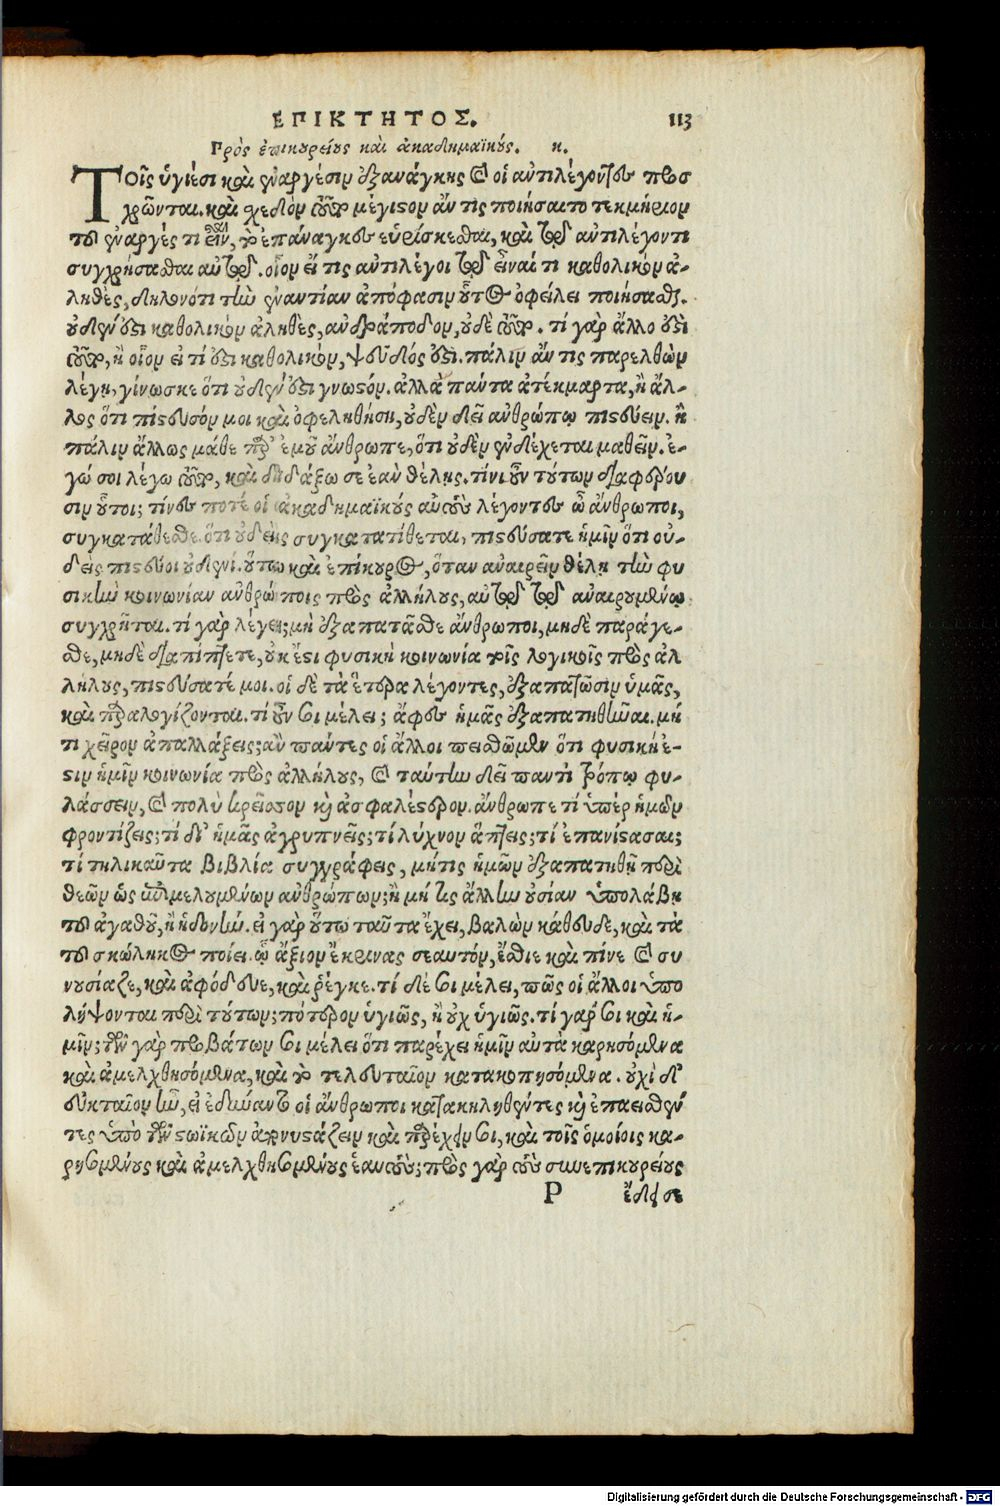 ΕΠΙΚΤΗΤΟΣ. 113
Πρὸς ἐπικουρείους καὶ ἀκαδημαϊκούς. κ.
Τοῖς ὑγιέσι καὶ ἐναργέσιν ἐξανάγκης καὶ οἱ ἀντιλέγοντες προσ
χρῶνται. καὶ σχεδὸν τοῦτο μέγιστον ἄν τις ποιήσαιτο τεκμήριον
τοῦ ἐναργές τι εἶναι, τὸ ἐπάναγκες εὑρίσκεσθαι, καὶ τῷ ἀντιλέγοντι
συγχρήσασθαι αὐτῷ. οἷον εἴ τις ἀντιλέγοι τῷ εἶναί τι καθολικὸν ἀ-
ληθές, δηλονότι τὴν ἐναντίαν ἀπόφασιν οὗτος ὀφείλει ποιήσασθαι.
οὐδέν ἐστι καθολικὸν ἀληθὲς, ἀνδράποδον, οὐδὲ τοῦτο. τί γὰρ ἄλλο ἐστὶ
τοῦτο, ἢ οἷον εἰ τί ἐστι καθολικὸν, ψεῦδός ἐστι. πάλιν ἄν τις παρελθὼν
λέγῃ, γίνωσκε ὅτι οὐδέν ἐστι γνωστόν. ἀλλὰ πάντα ἀτέκμαρτα, ἢ ἄλ-
λος ὅτι πίστευσόν μοι καὶ ὀφεληθήσῃ, οὐδὲν δεῖ ἀνθρώπῳ πιστεύειν. ἢ
πάλιν ἄλλως μάθε παρ' ἐμοῦ ἄνθρωπε, ὅτι οὐδὲν ἐνδέχεται μαθεῖν. ἐ-
γώ σοι λέγω τοῦτο, καὶ διδάξω σε ἐὰν θέλῃς. τίνι οὖν τούτων διαφέρου
σιν οὗτοι; τίνες ποτέ οἱ ἀκαδημαϊκοὺς αὑτοὺς λέγοντες ὦ ἄνθρωποι,
συγκατάθεσθε ὅτι οὐδεὶς συγκατατίθεται, πιστεύσατε ἡμῖν ὅτι οὐ-
δεὶς πιστεύοι οὐδενί. οὕτω καὶ ἐπίκουρος, ὅταν ἀναιρεῖν θέλῃ τὴν φυ
σικὴν κοινωνίαν ἀνθρώποις πρὸς ἀλλήλους, αὐτῷ τῷ ἀναιρουμένῳ
συγχρῆται. τί γὰρ λέγει; μὴ ἐξαπατᾶσθε ἄνθρωποι, μηδὲ παράγε-
σθε, μηδὲ διαπίπτετε, οὐκ ἔστι φυσικὴ κοινωνία τοῖς λογικοῖς πρὸς ἀλ
λήλους, πιστεύσατέ μοι. οἱ δὲ τὰ ἕτερα λέγοντες, ἐξαπατῶσιν ὑμᾶς,
καὶ παραλογίζονται. τί οὖν σοι μέλει; ἄφες ἡμᾶς ἐξαπατηθῆναι. μή
τι χεῖρον ἀπαλλάξεις; ἂν πάντες οἱ ἄλλοι πεισθῶμεν ὅτι φυσική ἐ-
στιν ἡμῖν κοινωνία πρὸς ἀλλήλους, καὶ ταύτην δεῖ παντὶ τρόπῳ φυ-
λάσσειν, καὶ πολὺ κρεῖσσον καὶ ἀσφαλέστερον. ἄνθρωπε τί ὑπὲρ ἡμῶν
φροντίζεις; τί δι' ἡμᾶς ἀγρυπνεῖς; τί λύχνον ἅπτεις; τί ἐπανίστασαι;
τί τηλικαῦτα βιβλία συγγράφεις, μήτις ἡμῶν ἐξαπατηθῇ περὶ
θεῶν ὡς ἐπιμελουμένων ἀνθρώπων; ἢ μή τις ἄλλην οὐσίαν ὑπολάβῃ
τοῦ ἀγαθοῦ, ἢ ἡδονήν. εἰ γὰρ οὕτω ταῦτα ἔχει, βαλὼν κάθευδε, καὶ τὰ
τοῦ σκώληκος ποίει. ᾧ ἄξιον ἔκρινας σεαυτόν, ἔσθιε καὶ πίνε καὶ συ
νουσίαζε, καὶ ἀφόδευε, καὶ ῥέγκε. τί δέ σοι μέλει, πῶς οἱ ἄλλοι ὑπο
λήψονται περὶ τούτων; πότερον ὑγιῶς, ἢ οὐχ ὑγιῶς. τί γάρ σοι καὶ ἡ-
μῖν; τῶν γὰρ προβάτων σοι μέλει ὅτι παρέχει ἡμῖν αὐτὰ καρησόμενα
καὶ ἀμελχθησόμενα, καὶ τὸ τελευταῖον κατακοπησόμενα. οὐχὶ δ'
εὐκταῖον ἦν, εἰ ἐδύναντο οἱ ἄνθρωποι κατακηληθέντες καὶ ἐπασθέν
τες ὑπὸ τῶν στωϊκῶν ἀπονυστάζειν καὶ παρέχειν σοι, καὶ τοῖς ὁμοίοις κα-
ρησομένους καὶ ἀμελχθησομένους ἑαυτούς; πρὸς γὰρ τοὺς συνεπικουρείους
P ἔδει σε
Digitalisierung gefördert durch die Deutsche Forschungsgemeinschaft - DFG